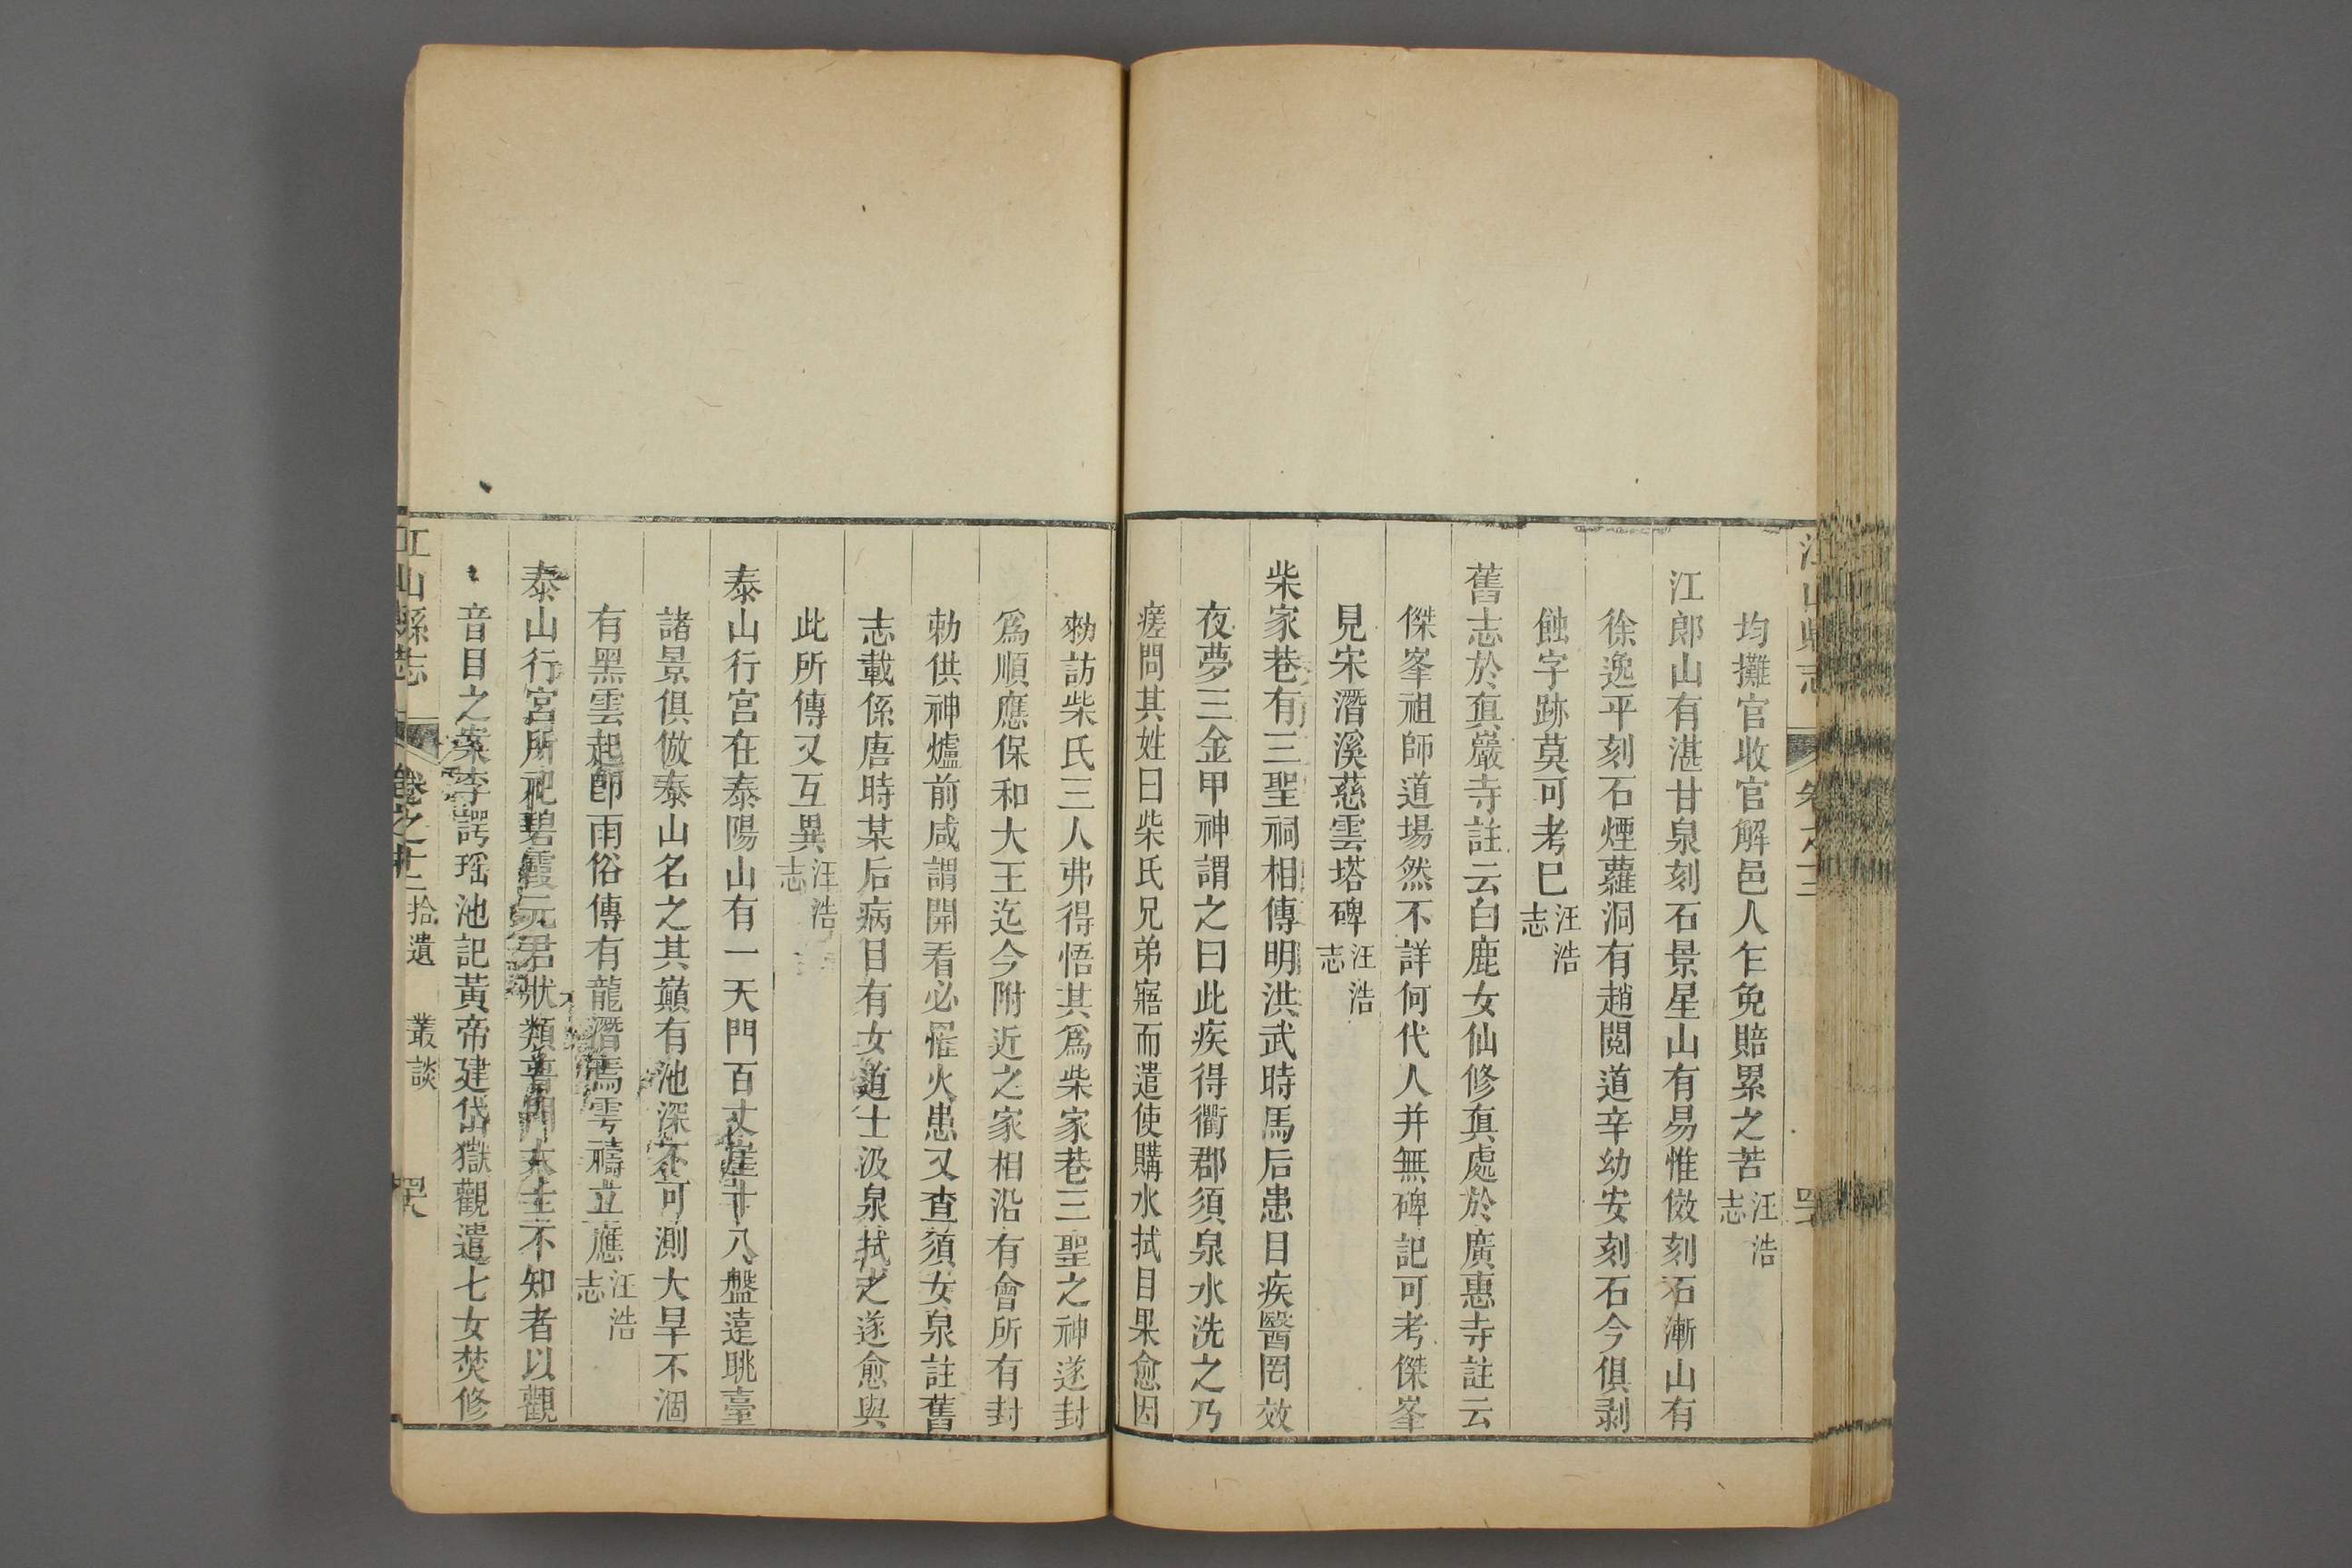 江山縣志
卷之十二
均攤官收官解邑人乍免賠累之苦汪浩志
江郎山有湛甘泉刻石景星山有易惟傚刻石漸山有
徐逸平刻石煙蘿洞有趙閱道辛幼安刻石今俱剥
蝕字跡莫可考巳汪浩志
舊志於眞巖寺註云白鹿女仙修眞處於廣惠寺註云
傑峯祖師道場然不詳何代人并無碑記可考傑峯
見宋潛溪慈雲塔碑汪浩志
柴家巷有三聖祠相傳明洪武時馬后患目疾醫罔效
夜夢三金甲神謂之曰此疾得衢郡須泉水洗之乃
瘥問其姓曰柴氏兄弟寤而遣使購水拭目果愈因
勑訪柴氏三人弗得悟其爲柴家巷三聖之神遂封
爲順應保和大王迄今附近之家相沿有會所有封
勑供神爐前咸謂開看必罹火患又查須女泉註舊
志載係唐時某后病目有女道士汲泉拭之遂愈與
此所傳又互異汪浩志
泰山行宫在泰陽山有一天門百丈崖十八盤遠眺臺
諸景俱倣泰山名之其巔有池深不可測大旱不涸
有黑雲起卽雨俗傳有龍潛焉雩禱立應汪浩志
泰山行宮所祀碧霞元君狀類普門大士不知者以觀
音目之案李諤瑶池記黃帝建岱嶽觀遣七女焚修
江山縣志
卷之十二 拾遺 叢談